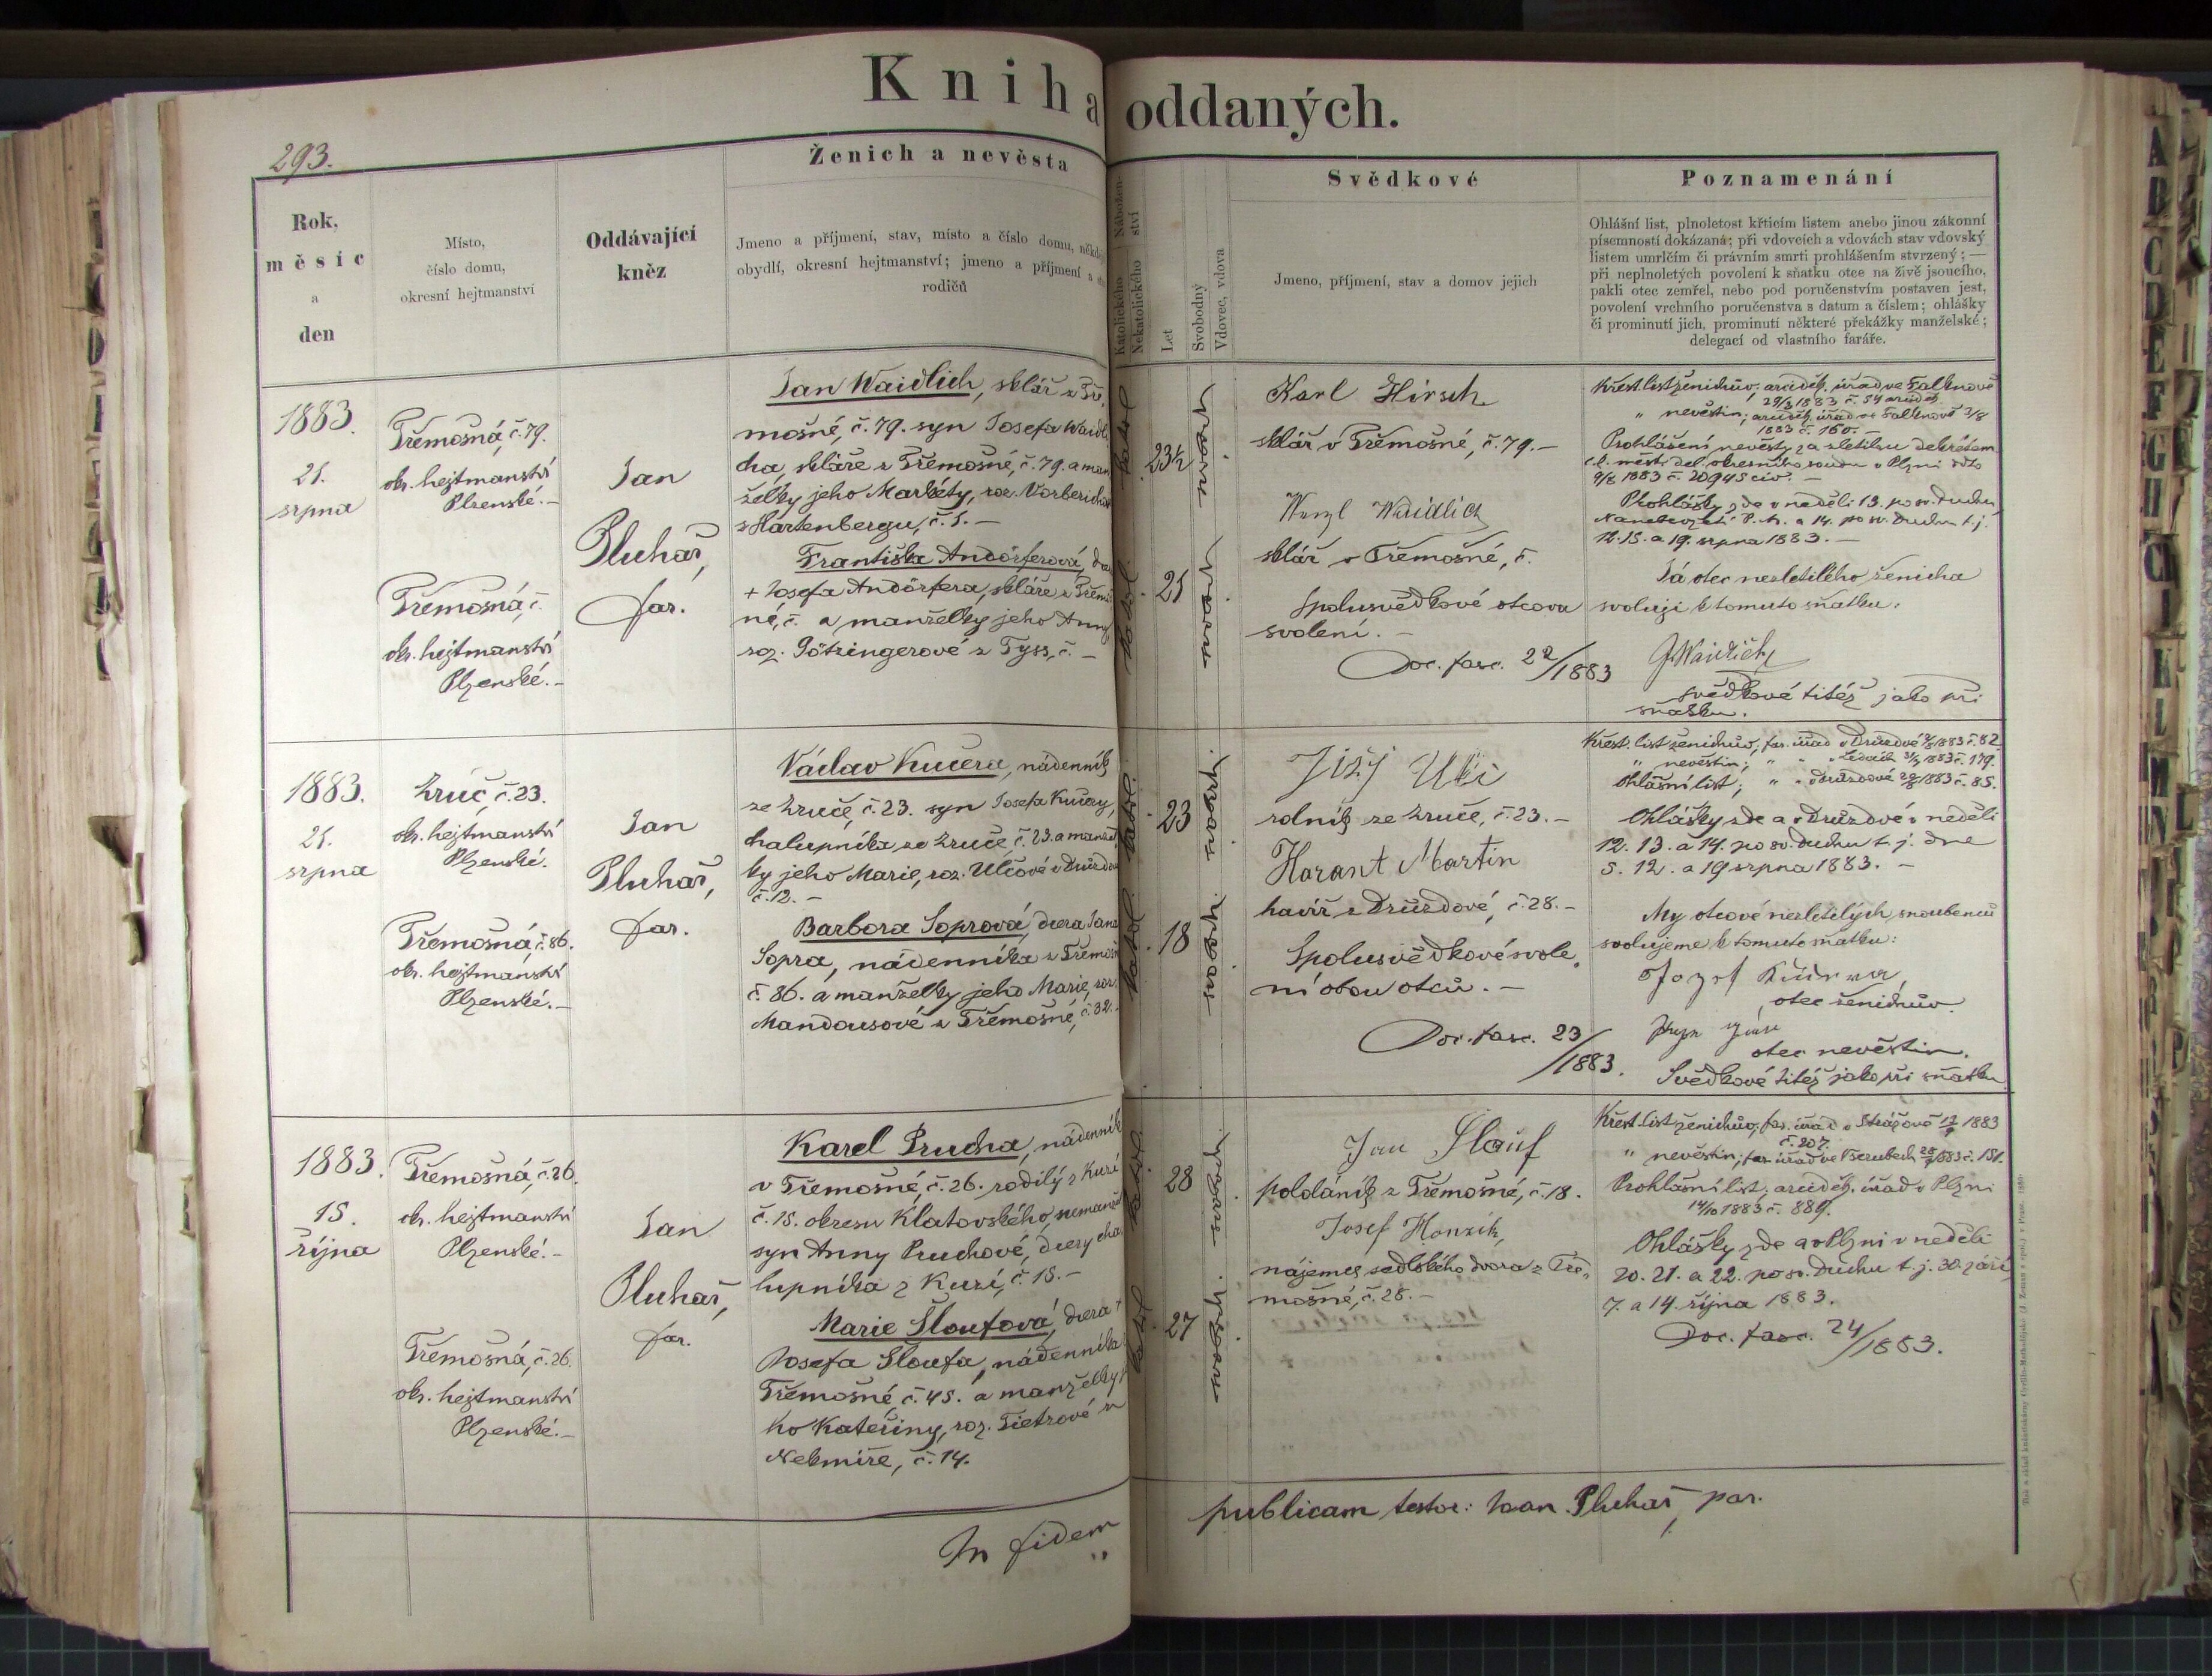 Kniha oddaných.
293.
Ženich a nevěsta
Rok,
měsíc
a
den
Místo,
číslo domu,
okresní hejtmanství
Oddávající
kněz
Jmeno a příjmení, stav, místo a číslo domu,
obydlí, okresní hejtmanství; jmeno a příjmení a
rodičů
Nábožen-
ství
Katolického
Nekatolického
Let
Svobodný
Vdovec, vdova
Svědkové
Jmeno, příjmení, stav a domov jejich
Poznamenání
Ohlášní list, plnoletost křticím listem anebo jinou zákonní
písemností dokázaná; při vdovcích a vdovách stav vdovský
listem umrlčím či právním smrti prohlášením stvrzený; —
při neplnoletých povolení k sňatku otce na živě jsoucího,
pakli otec zemřel, nebo pod poručenstvím postaven jest,
povolení vrchního poručenstva s datum a číslem; ohlášky
či prominutí jich, prominutí některé překážky manželské;
delegací od vlastního faráře.
1883.
21.
srpna
Třemošná, č. 79.
okr. hejtmanství
Plzenské.—
Třemošná, č.
okr. hejtmanství
Plzenské.—
Jan
Pluhař,
far.
Jan Waidlich, sklář z Tře-
mošné, č. 79. syn Josefa Waidli
cha, skláře z Třemošné, č. 79. a man
želky jeho Markéty, roz.
z Hartenbergu, č. 1.—
Františka Andörferová,
+ Josefa Andörfera, skláře z Třemoš
né, č. a manželky jeho Anny,
roz. Götzingerové z Tyss, č.—
katol.
23½
svobodný
katol.
21
svobodná
Karl Hirsch
sklář v Třemošné, č. 79.—
Wenzl Waidlich
sklář v Třemošné, č.
Spolusvědkové otcova
svolení.—
Doc. fasc. 22/1883
Křest. list ženichův; arciděk. úřad ve Falknově
29/3 1883 č. 54 arciděk.
„ nevěstin; arciděk. úřad ve Falknově 3/8
1883 č. 160.—
Prohlášení nevěsty za zletilou dekretem
c. k. měst. del. okresního soudu v Plzni ddto
9/8 1883 č. 20945 civ.—
Prohlášky zde v neděli 13. po sv. Duchu,
Nanebevzetí P. M. a 14. po sv. Duchu t. j.
12. 15. a 19. srpna 1883.—
Já otec nezletilého ženicha
svoluji k tomuto sňatku:
J. Waidlich
svědkové titéž jako při
sňatku.
1883.
21.
srpna
Zruč, č. 23.
okr. hejtmanství
Plzenské.
Třemošná, č. 86.
okr. hejtmanství
Plzenské.—
Jan
Pluhař,
far.
Václav Kučera, nádenník
ze Zruče, č. 23. syn Josefa Kučery,
chalupníka ze Zruče č. 23. a manžel
ky jeho Marie, roz. Ulčové z Druzdové
č. 12.—
Barbora Soprová, dcera Jana
Sopra, nádenníka z Třemošné
č. 86. a manželky jeho Marie, roz.
Mandousové z Třemošné, č. 32.—
katol.
23
svobodný
katol.
18
svobodná
Jiží Ulči
rolník ze Zruče, č. 23.—
Harant Martin
havíř z Druzdové, č. 28.—
Spolusvědkové svole-
ní obou otců.—
Doc. fasc. 23/1883.
Křest. list ženichův; far. úřad v Druzdové 1883 č. 82.
„ nevěstin; „ „ Ledcích 1883 č. 179.
Ohlášní list; „ „ Druzdové 1883 č. 85.
Ohlášky zde a v Druzdové v neděli
12. 13. a 14. po sv. Duchu t. j. dne
5. 12. a 19 srpna 1883.—
My otcové nezletilých snoubenců
svolujeme k tomuto sňatku:
Jozef Kučera,
otec ženichův.
otec nevěstin.
Svědkové titéž jako při sňatku.
1883.
15.
října
Třemošná, č. 26.
okr. hejtmanství
Plzenské.—
Třemošná, č. 26.
okr. hejtmanství
Plzenské.—
Jan
Pluhař,
far.
Karel Prucha, nádenník
v Třemošné, č. 26. rodilý z Kuzí
č. 15. okresu Klatovského, nemanžel
syn Anny Pruchové, dcery cha
lupníka z Kuzí, č. 15.—
Marie Šloufová, dcera +
Josefa Šloufa, nádenníka z
Třemošné, č. 45. a manželky je
ho Kateřiny, roz. Tietzové z
Nekmíře, č. 14.
katol.
28
svobodný
katol.
27
svobodná
Jan Slouf
poldáník z Třemošné, č. 18.
Josef Honzik,
nájemce sedlského dvora z Tře-
mošné, č. 28.—
Křest. list ženichův; far. úřad v Strážově 1883
č. 207.
„ nevěstin; far. úřad ve Všerubech 1883 č. 151.
Prohlášní list; arciděk. úřad v Plzni
14/10 1883 č. 889.
Ohlášky zde a v Plzni v neděli
20. 21. a 22. po sv. Duchu t. j. 30. září,
7. a 14. října 1883.
Doc. fasc. 24/1883.
In fidem publicam testor: Joan. Pluhař, par.